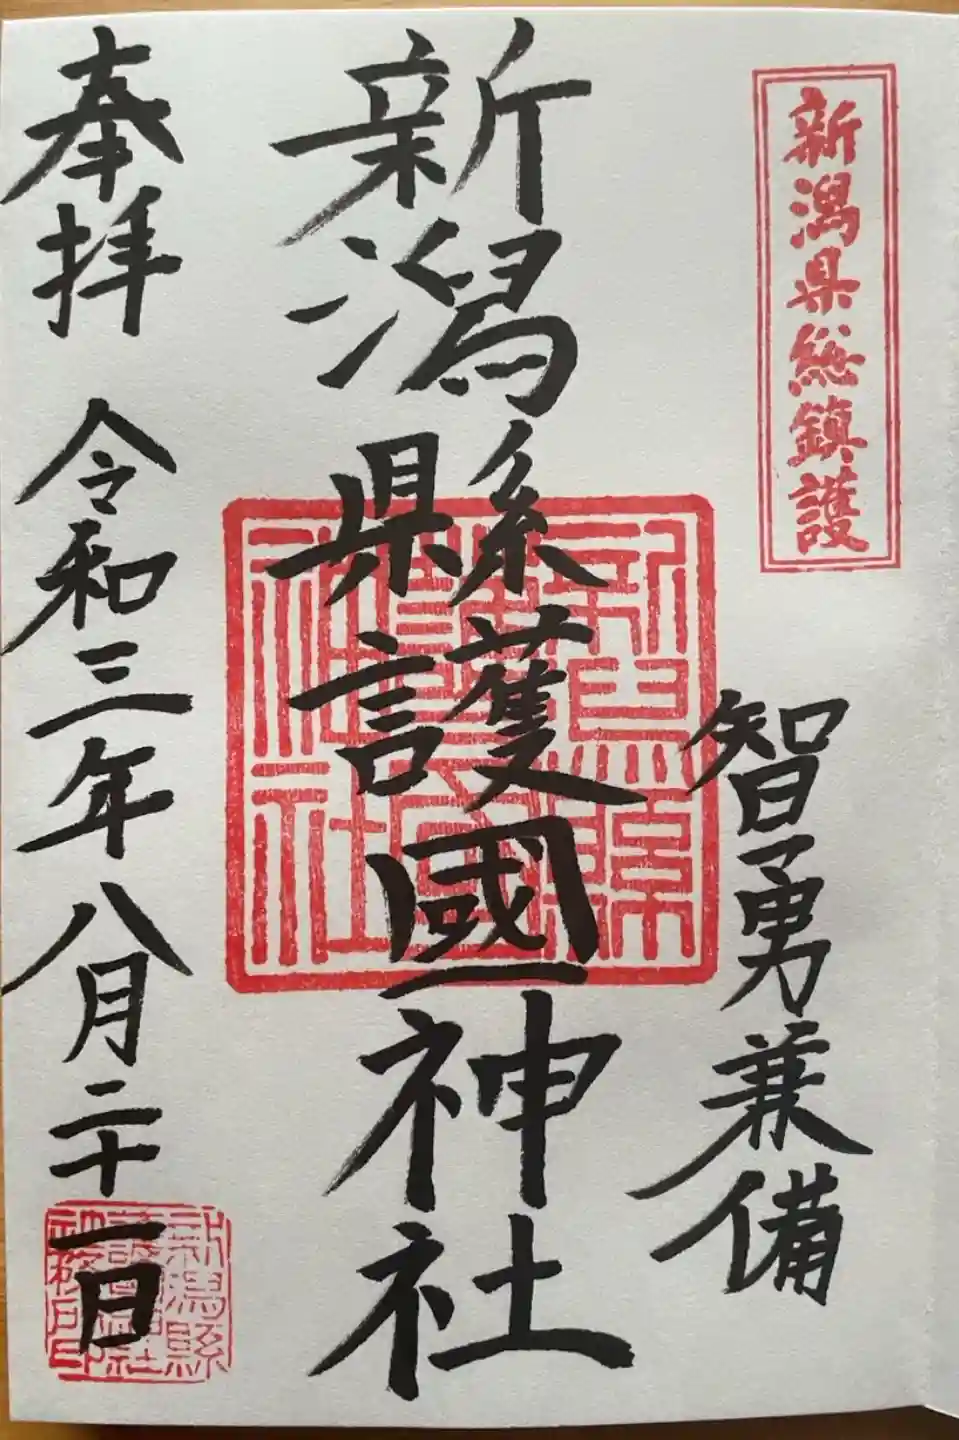 新潟県総鎮護
智勇兼備
新潟縣護國神社
奉拝 令和三年八月二十一日
新潟縣護國神社
新潟縣護國神社社務所印